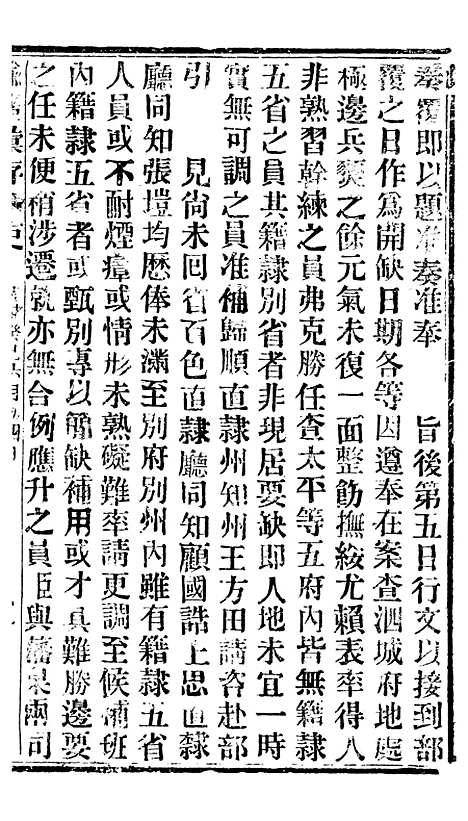 奏覆即以題准奏准奉　　旨後第五日行文以接到部
覆之日作為開缺日期各等因遵奉在案查泗城府地處
極邊兵燹之餘元氣未復一面整飭撫綏尤賴表率得人
非熟習幹練之員弗克勝任查太平等五府內皆無籍隸
五省之員其籍隸別省者非現居要缺即人地未宜一時
實無可調之員准補歸順直隸州知州王方田請咨赴部
引　　見尚未回省百色直隸廳同知顧國誥上思直隸
廳同知張塏均歷俸未滿至別府別州內雖有籍隸五省
人員或不耐煙瘴或情形未熟礙難率請更調至候補班
內籍隸五省者或甄別專以簡缺補用或才具難勝邊要
之任未便稍涉遷就亦無合例應升之員臣與藩臬兩司
諭摺彙存